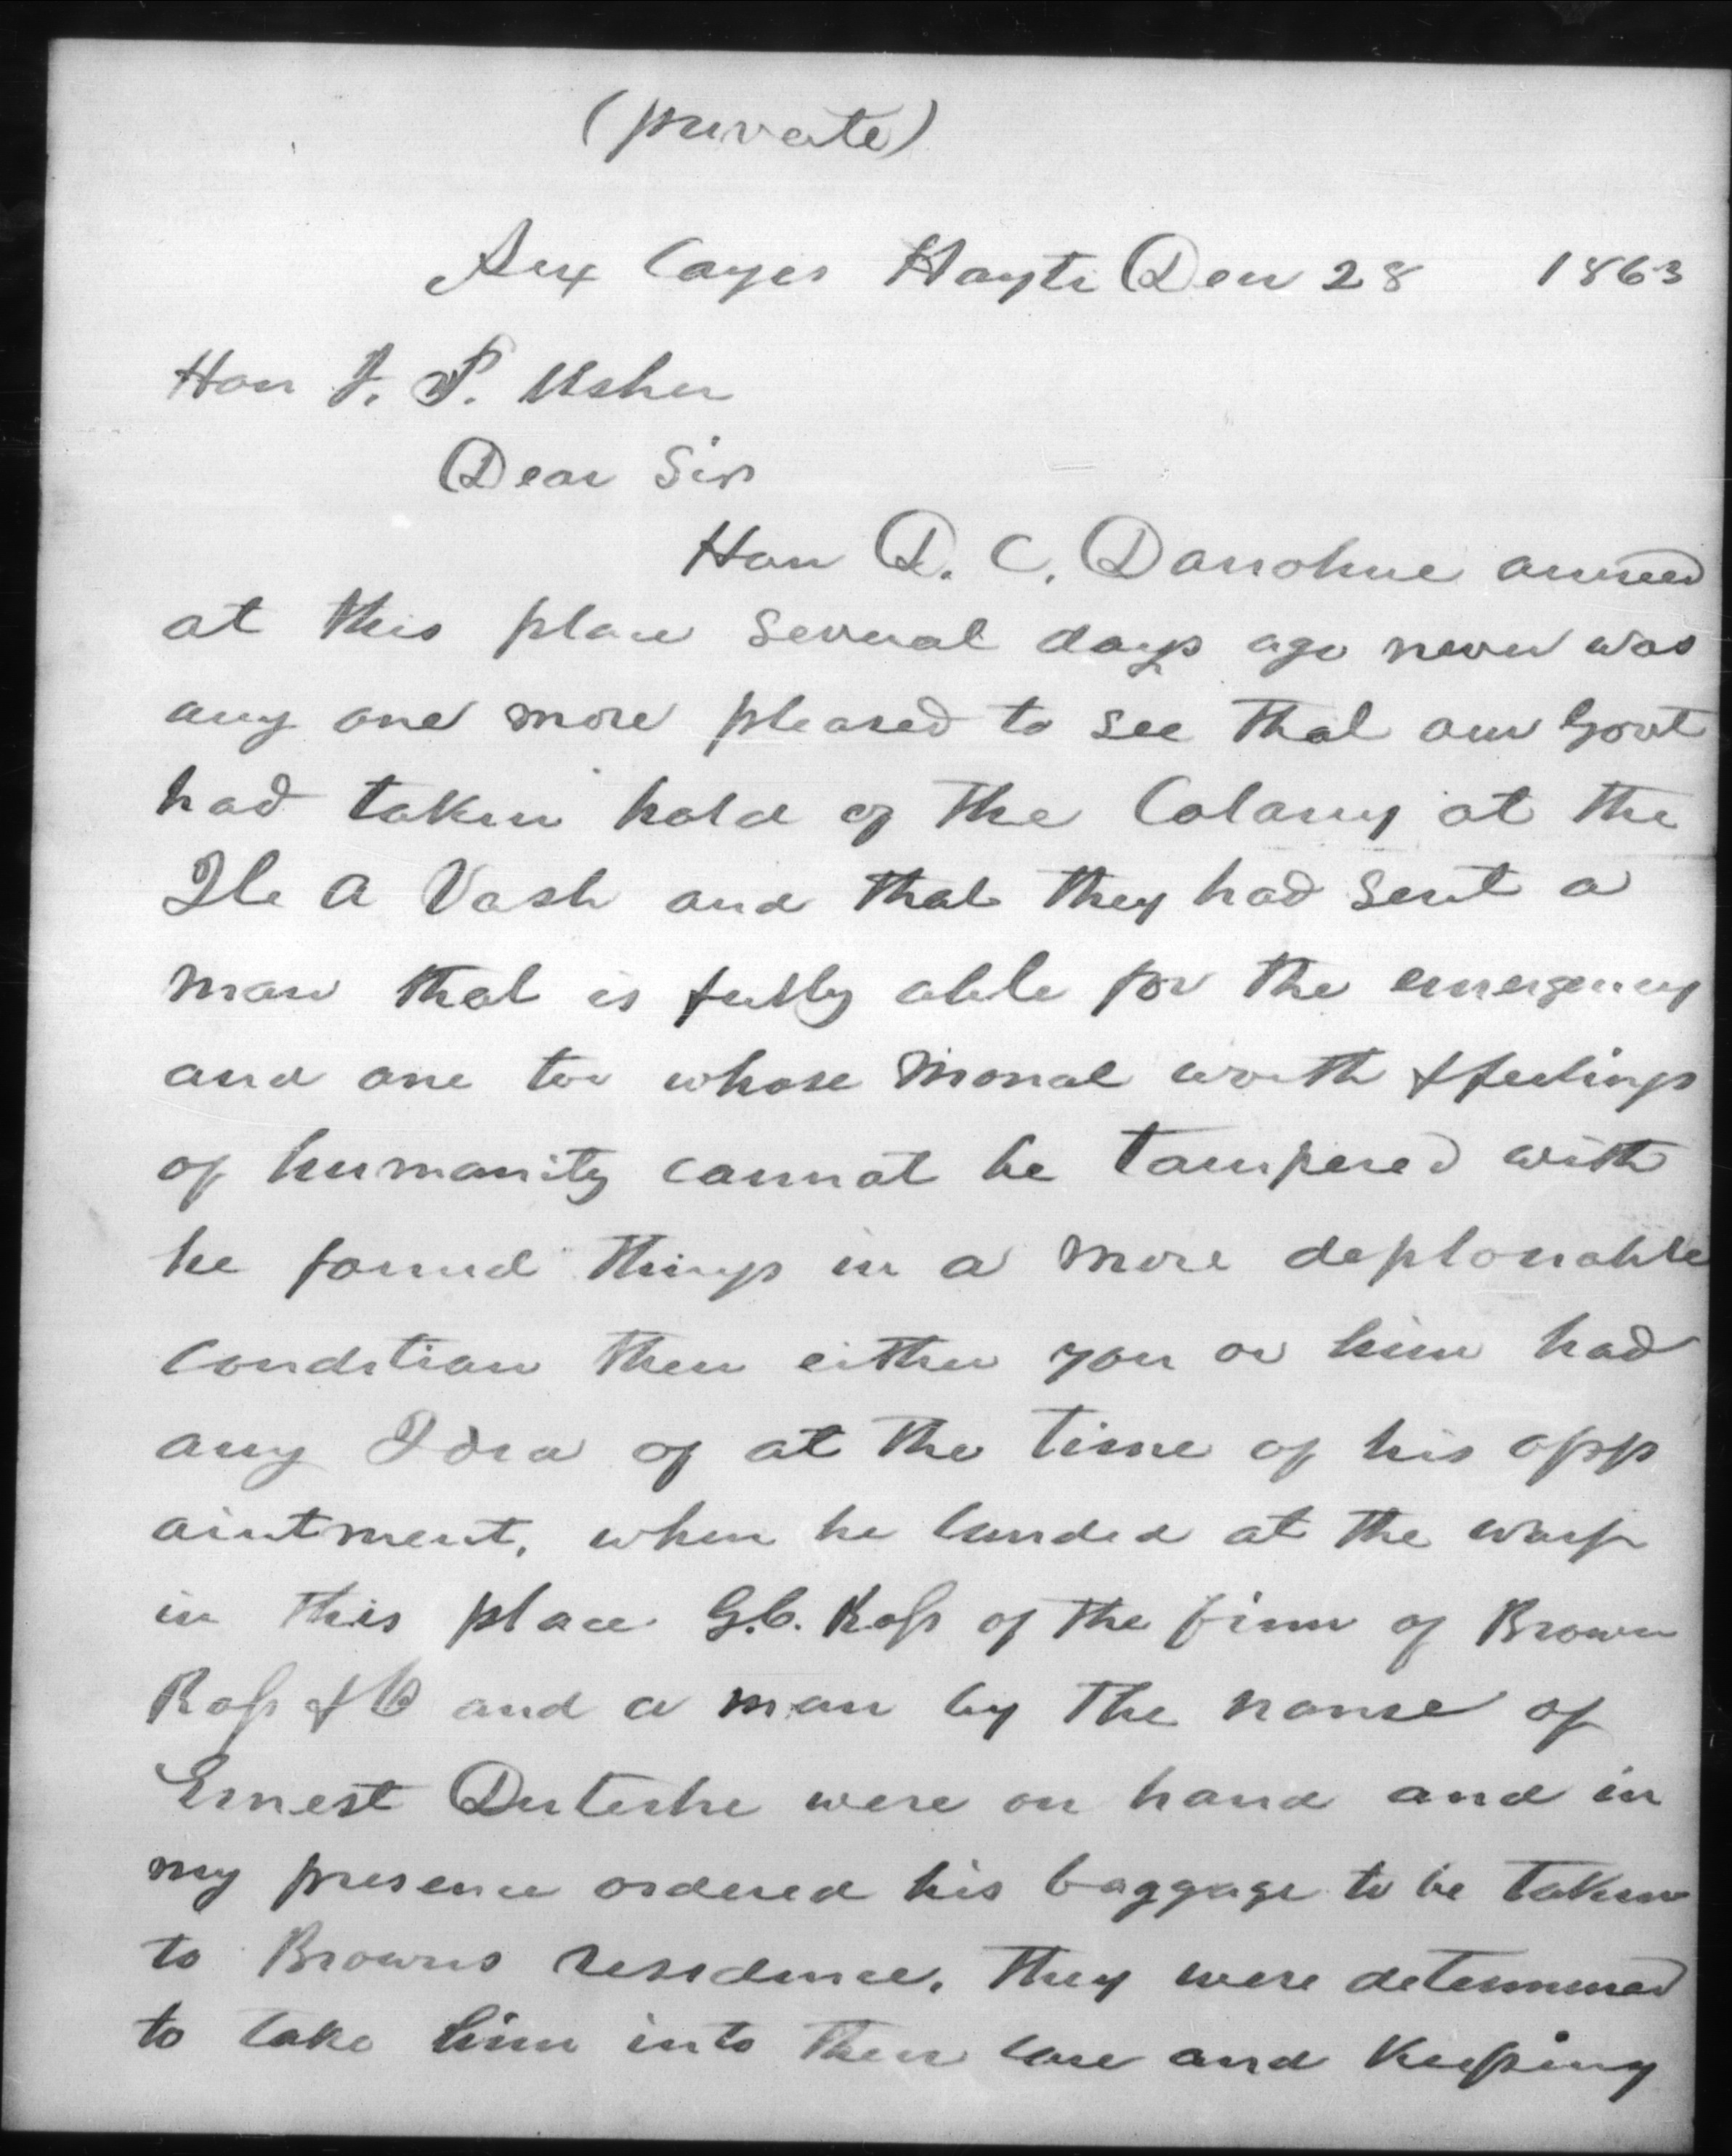 (private)
Aux Cayes Hayti Dec 28 1863
Hon J. P. Usher
Dear Sir
Hon D. C. Donohue arrived
at this place several days ago never was
any one more pleased to see that our Govt
had taken hold of the Colany at the
Ile A Vash and that they had sent a
man that is fully able for the emergency
and one too whose moral worth & feelings
of humanity cannot be tampered with
he found things in a more deplorable
condition then either you or him had
any Idea of at the time of his app
ointment, when he landed at the warf
in this place G.C. Ross of the firm of Brown
Ross & Co and a man by the name of
Ernest Duteshe were on hand and in
my presence ordered his baggage to be taken
to Browns residence. They were determined
to take him into their care and Keeping